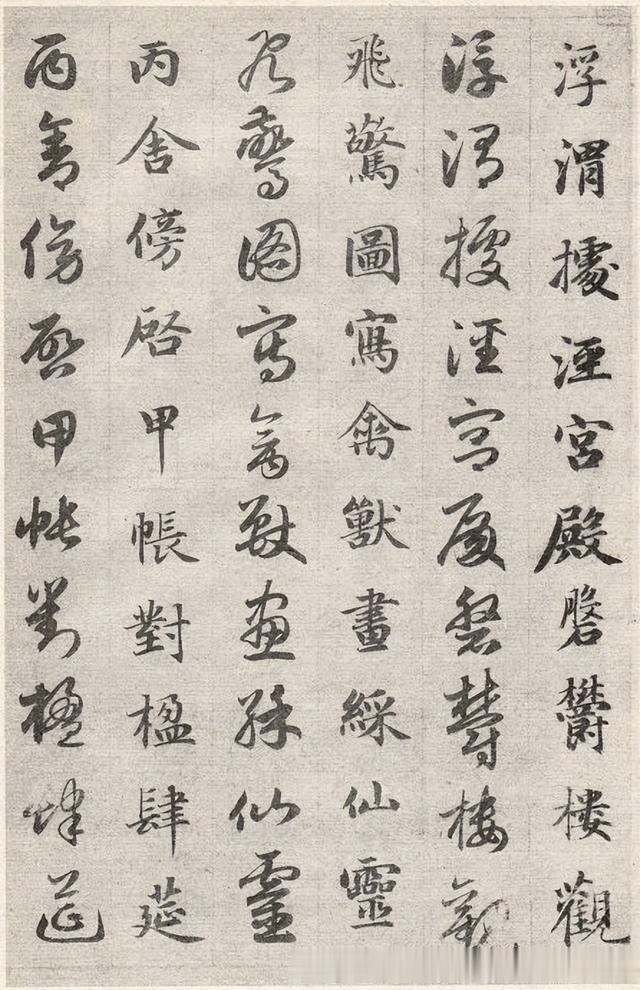 浮渭據涇宮殿磐欝楼觀
浮渭據涇宮殿磐欝楼觀
飛驚圖寫禽獸畫綵仙靈
飛驚圖寫禽獸畫綵仙靈
丙舍傍啓甲帳對楹肆莚
丙舍傍啓甲帳對楹肆莚